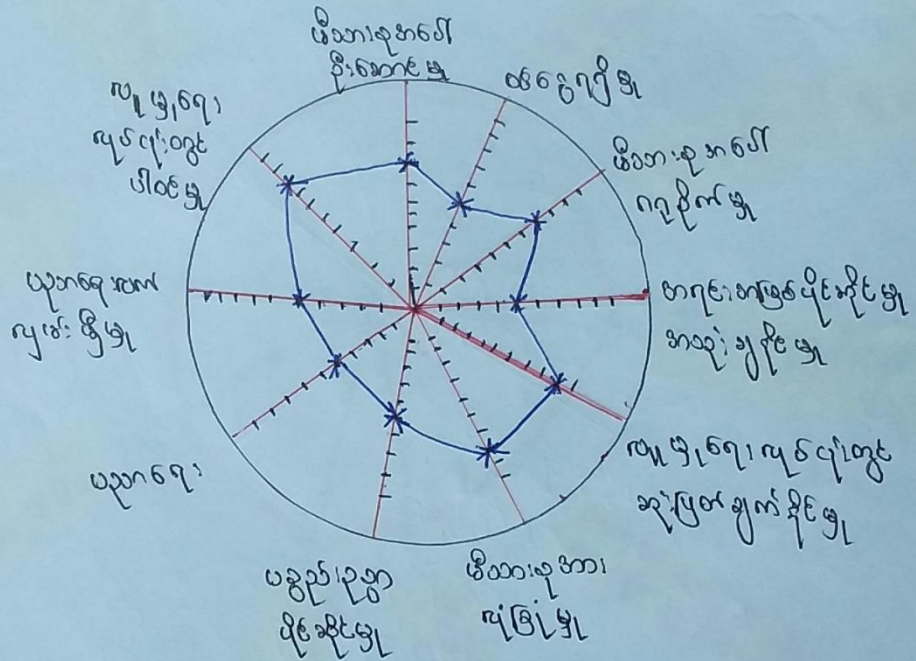 မိသားစုအပေါ်
ဦးဆောင်မှု
ဝင်ငွေရရှိမှု
မိသားစုအပေါ်
ဂရုစိုက်မှု
အရင်းအမြစ်ပိုင်ဆိုင်မှု
အသုံးချနိုင်မှု
လူမှုရေးလုပ်ငန်းတွင်
ဆုံးဖြတ်ချက်နိုင်မှု
မိသားစုအား
လုံခြုံမှု
ပစ္စည်းဥစ္စာ
ပိုင်ဆိုင်မှု
ပညာရေး
ပညာရေး
လွှမ်းမိုးမှု
လူမှုရေး
လုပ်ငန်းတွင်
ပါဝင်မှု